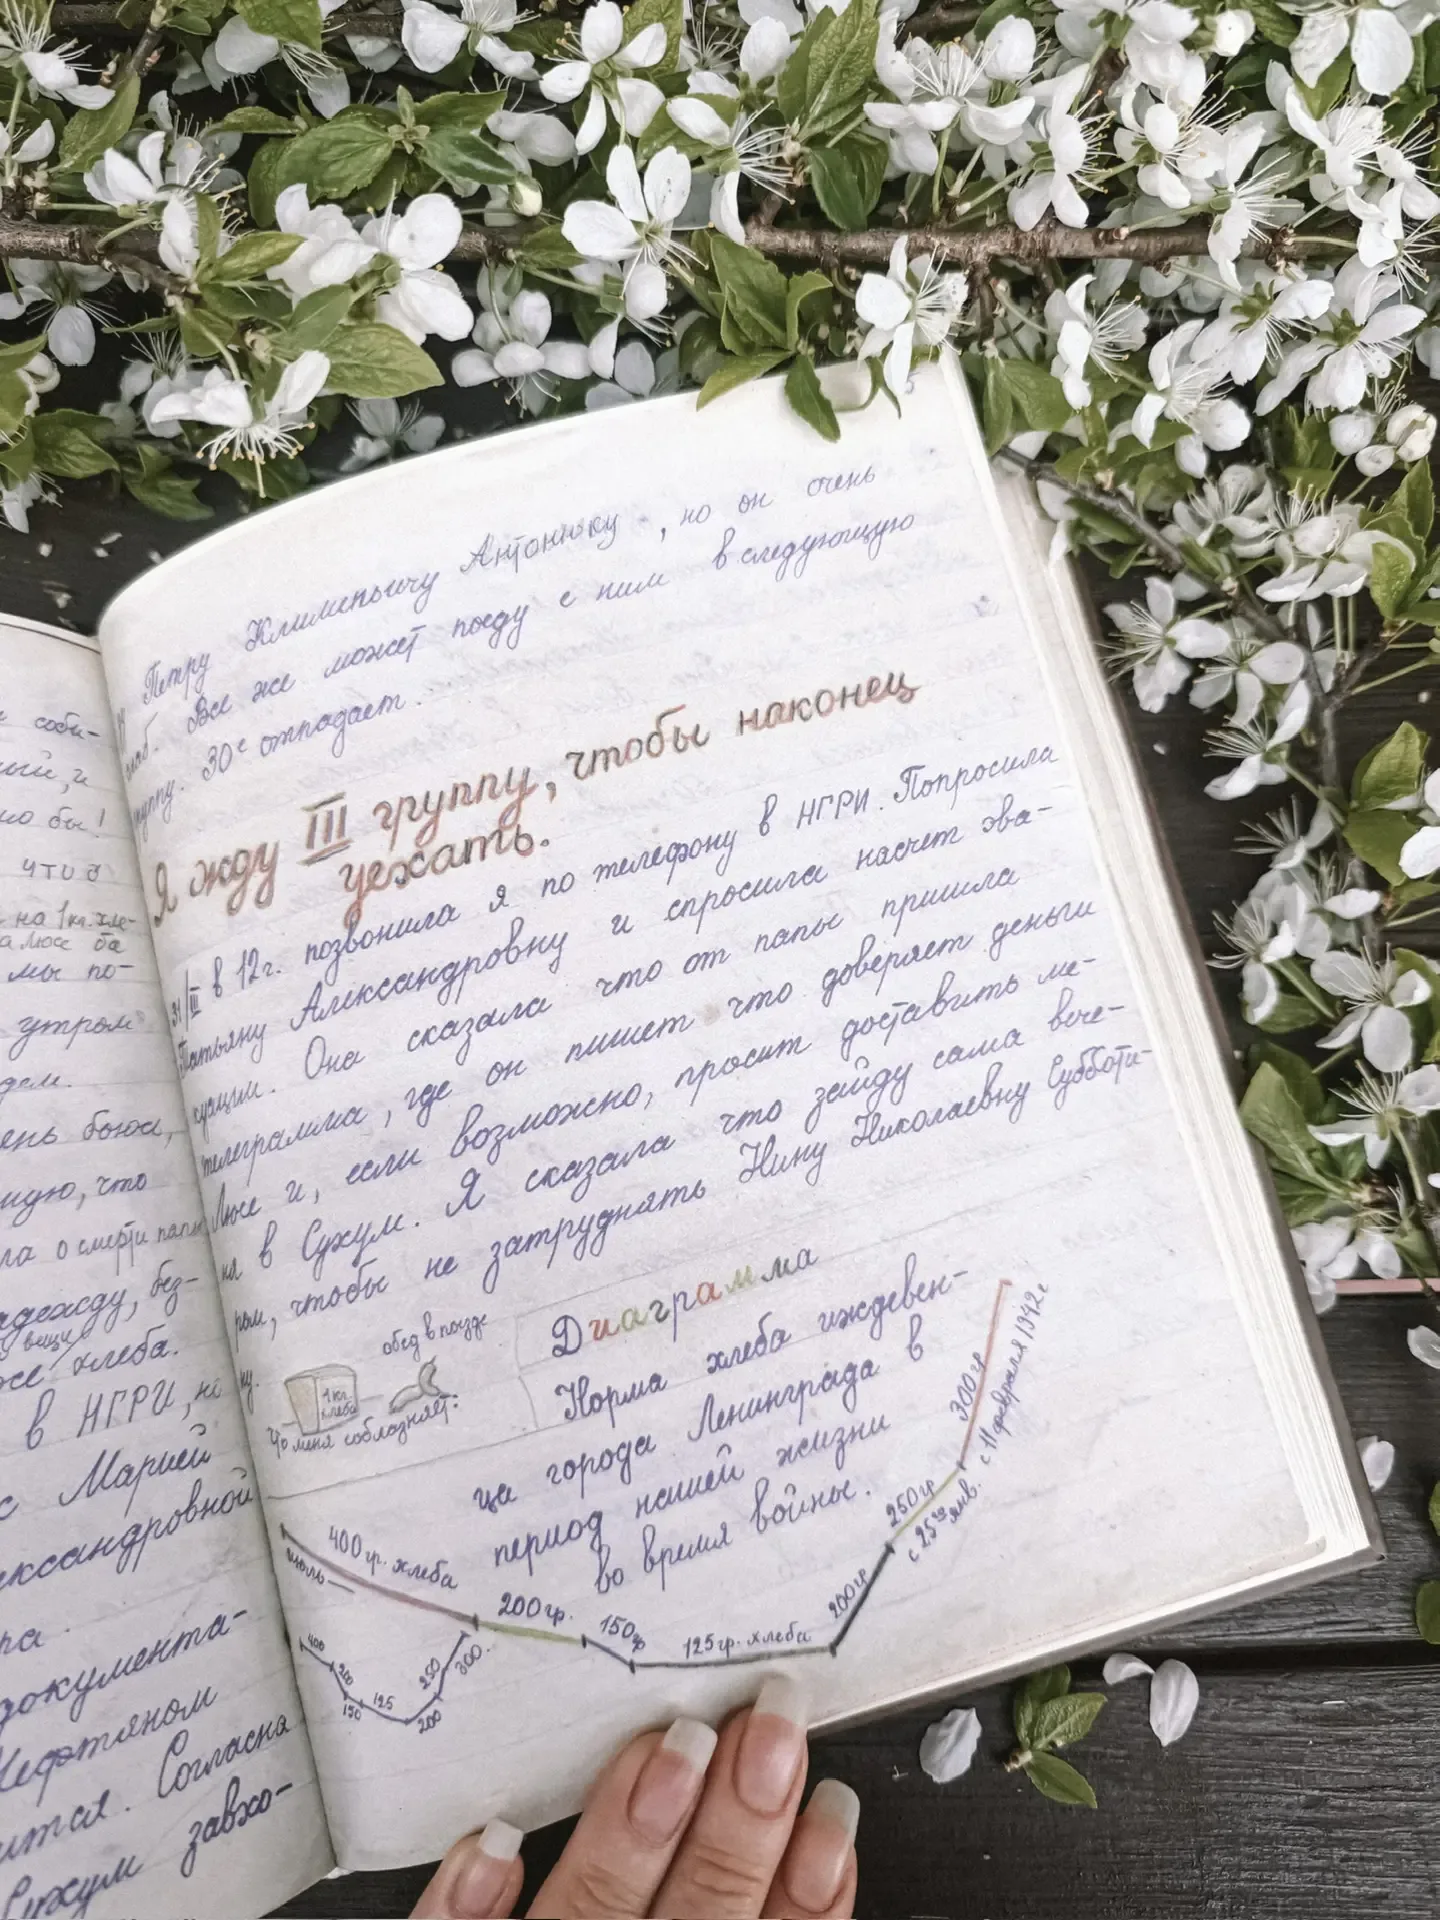 собы-
ный, и
но бы!
что в
на 1 кг. хле-
мы по-
утром
дем.
ень боюсь,
что
ла о смерти папы
адежду, без-
вещи
же хлеба.
в НГРИ, но
с Марией
ександровной
ра.
документа-
Нефтяном
ится. Согласна
Сухум завхо-
Петру Климентьичу Антонюку, но он очень
слаб. Все же может поеду с ним в следующую
группу. 30ᵉ отпадает.
Я жду III группу, чтобы наконец
уехать.
31/III в 12 г. позвонила я по телефону в НГРИ. Попросила
Татьяну Александровну и спросила насчет эва-
куации. Она сказала что от папы пришла
телеграмма, где он пишет что доверяет деньги
Люсе и, если возможно, просит доставить ме-
ня в Сухум. Я сказала что зайду сама вече-
ром, чтобы не затруднять Нину Николаевну Субботи-
ну.
обед в поезде
1 кг. хлеба
Что меня соблазняет:
Диаграмма
Норма хлеба иждевен-
ца города Ленинграда в
период нашей жизни
во время войны.
400 гр. хлеба
июль —
200 гр.
150 гр
125 гр. хлеба
200 гр
250 гр
с 25го янв.
300 гр
с 11 февраля 1942 г
400
200
150
125
200
250
300.